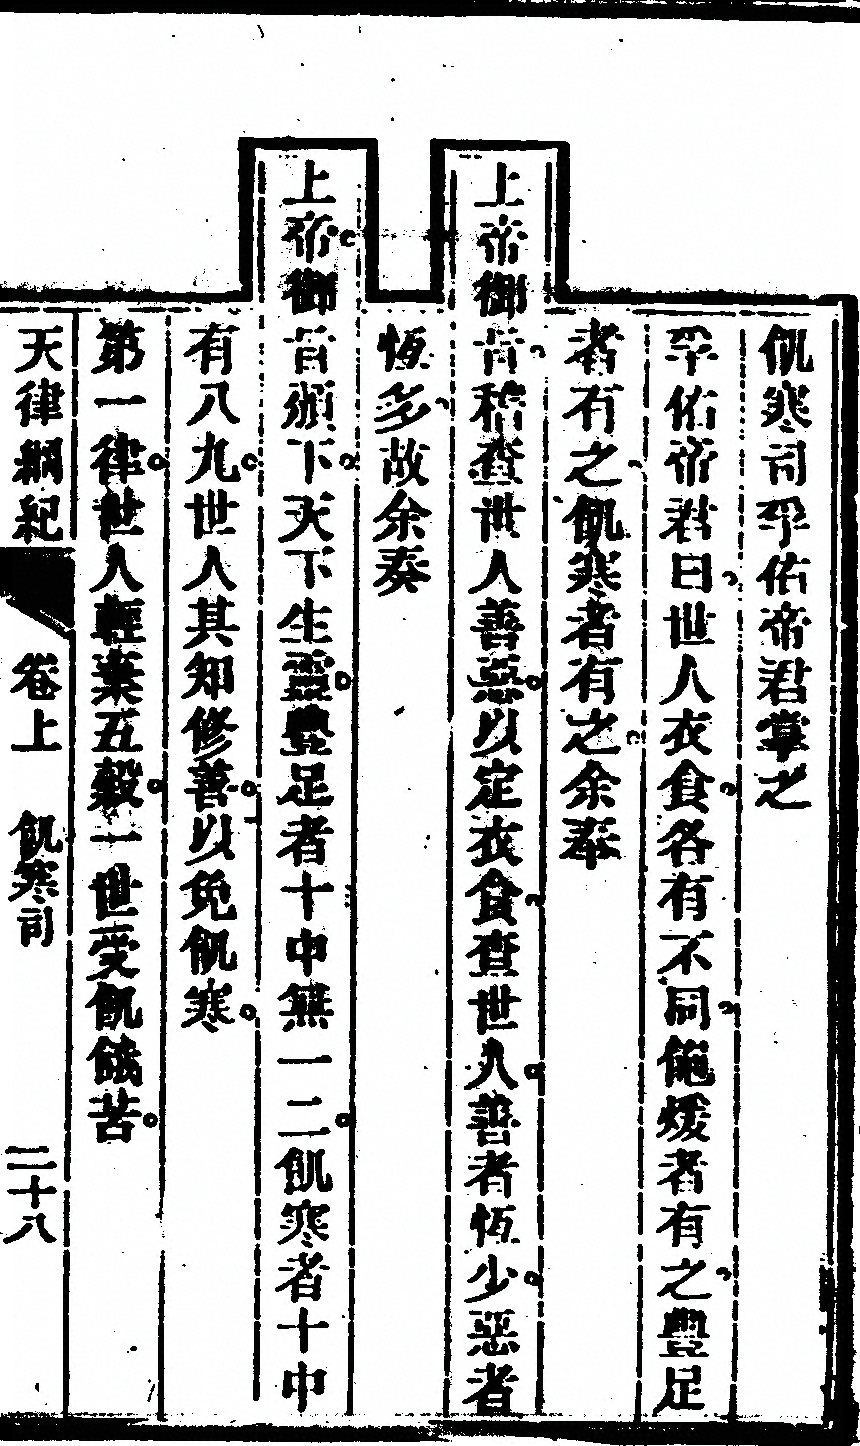 飢寒司孚佑帝君掌之
孚佑帝君曰世人衣食各有不同飽煖者有之豐足
者有之飢寒者有之余奉
上帝御旨稽查世人善惡以定衣食查世人善者恆少惡者
恆多故余奏
上帝御旨頒下天下生靈豐足者十中無一二飢寒者十中
有八九世人其知修善以免飢寒
第一律世人輕棄五穀一世受飢餓苦
天律綱紀 卷上 飢寒司 二十八